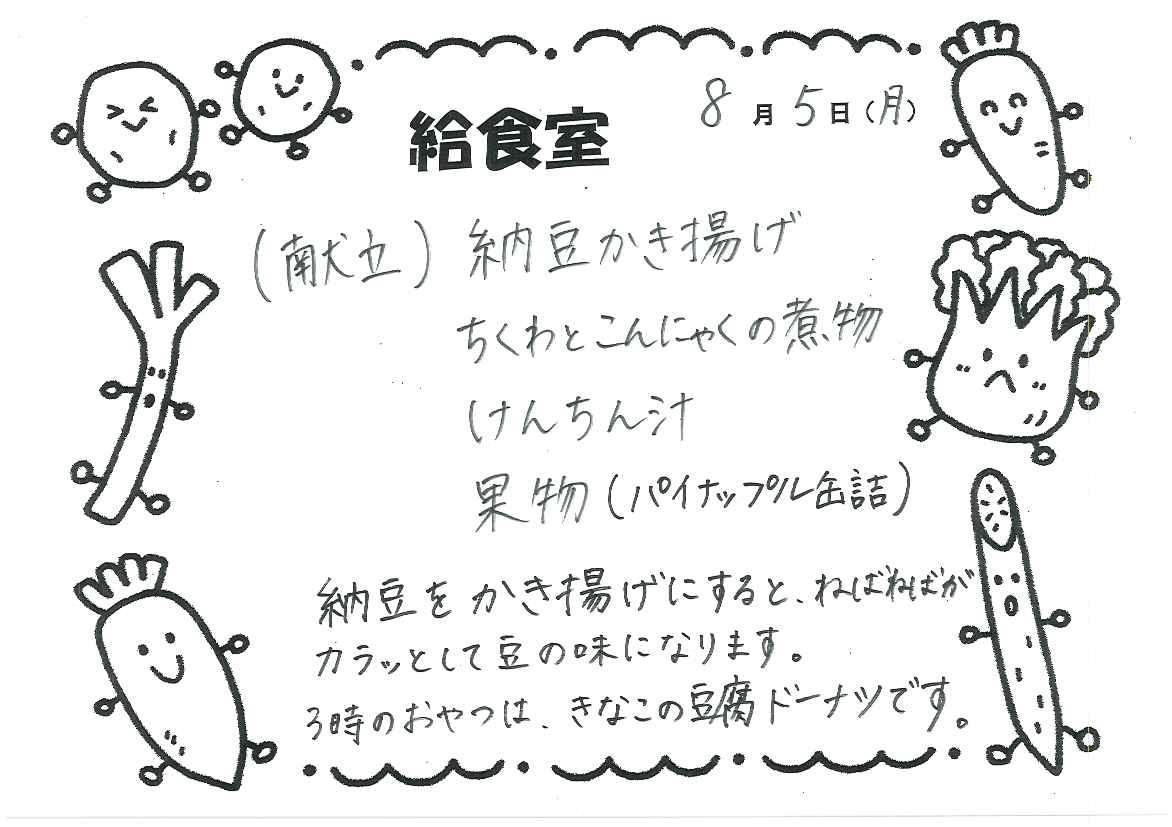 給食室
8月5日(月)
(献立)納豆かき揚げ
ちくわとこんにゃくの煮物
けんちん汁
果物(パイナップル缶詰)
納豆をかき揚げにすると、ねばねばが
カラッとして豆の味になります。
3時のおやつは、きなこの豆腐ドーナツです。